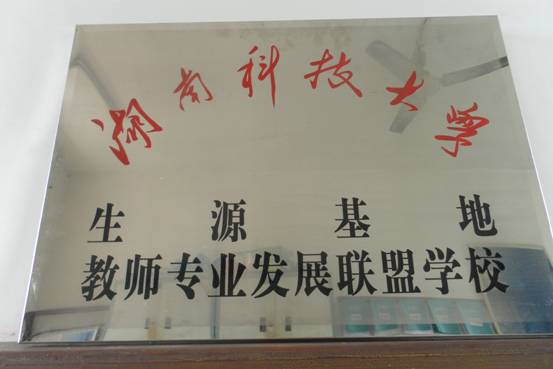 湖南科技大学
生源基地
教师专业发展联盟学校